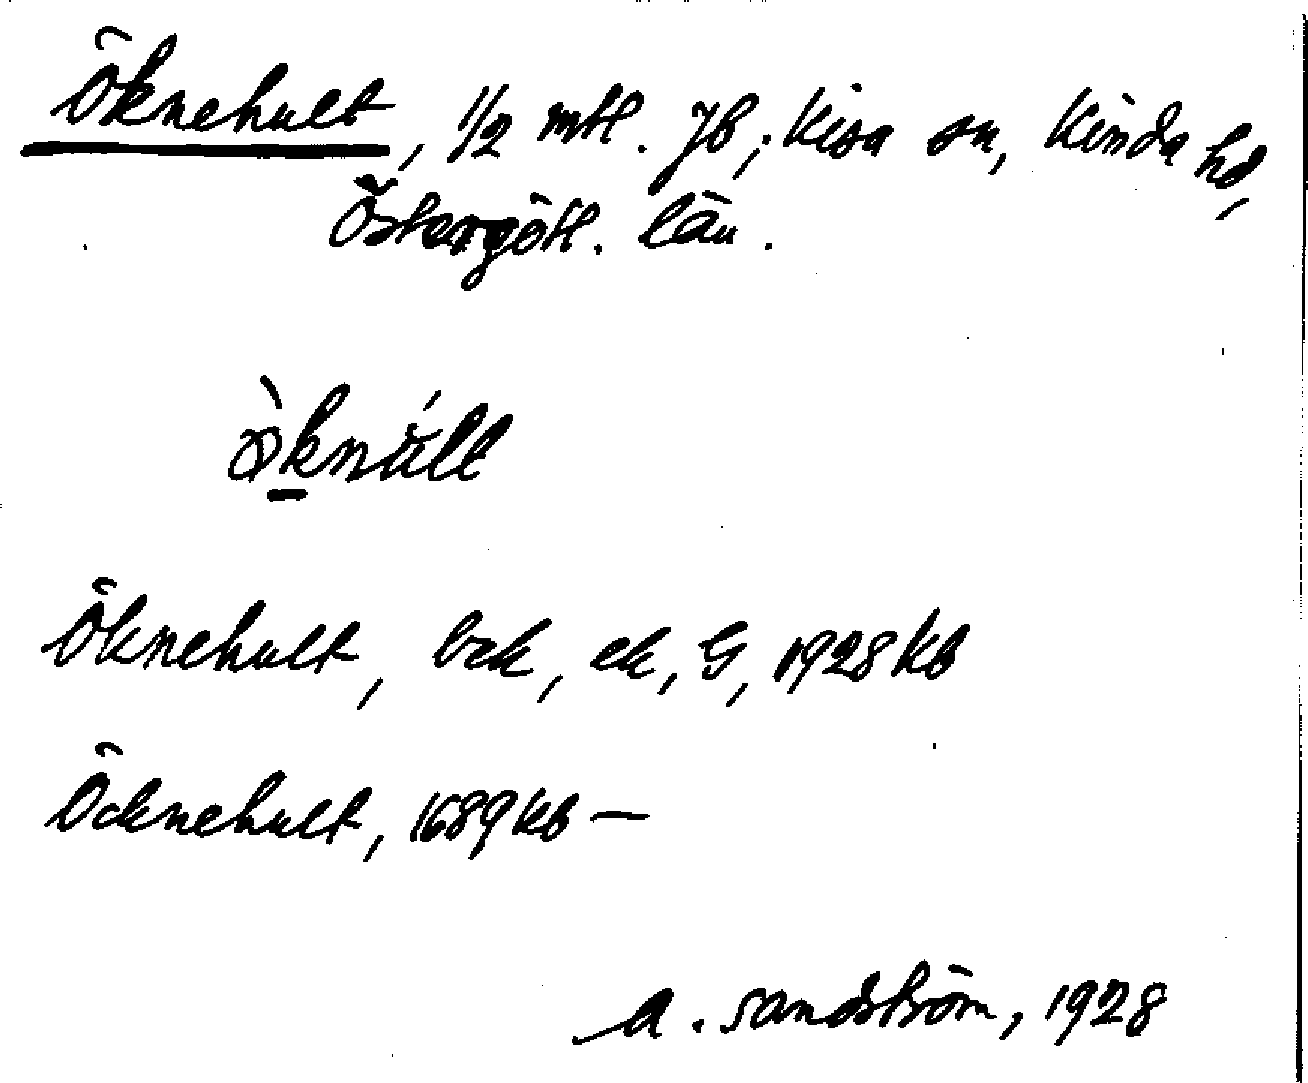 Öknehult, 1/2 mtl. Jb; Kisa sn, Kinda hd,
Östergötl. län.
ò̱knúlt
Öknehult, bek, ek, G, 1928 kb
Öcknehult, 1689 kb —
A. Sandström, 1928